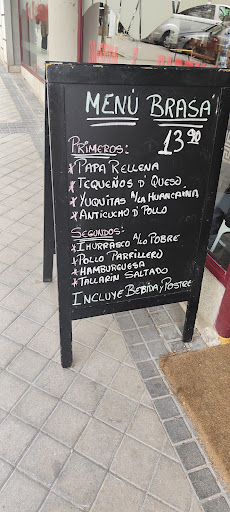 MENÚ BRASA
13.90
PRIMEROS:
* PAPA RELLENA
* TEQUEÑOS D' QUESO
* YUQUITAS A/LA HUANCAINA
* ANTICUCHO D' POLLO
SEGUNDOS:
* CHURRASCO A/LO POBRE
* POLLO PARRILLERO
* HAMBURGUESA
* TALLARIN SALTADO
INCLUYE BEBIDA Y POSTRE